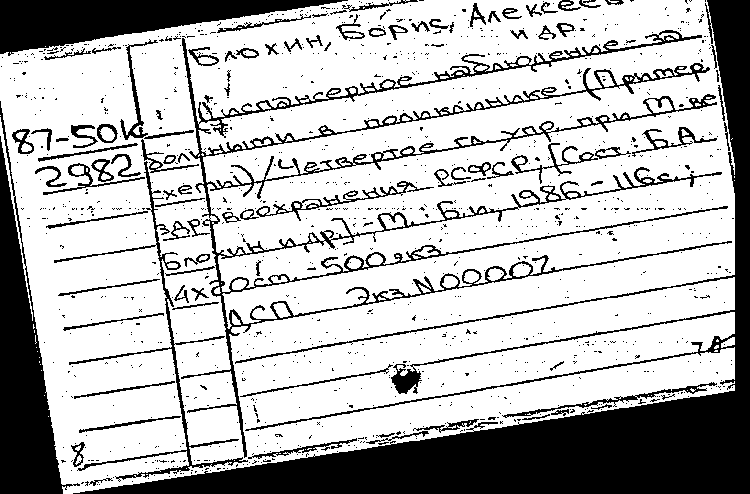 Блохин, Борис, Алексеев.
и др.
Диспансерное наблюдение за
87-50к
больными в поликлинике: (Пример.
2982
схемы) / Четвертое гл. упр. при М-ве
здравоохранения РСФСР; [Сост.: Б.А.
Блохин и др.] - М.: Б.и., 1986. - 116с.;
14х20см. - 500 экз.
ДСП. Экз. N 00007.
8